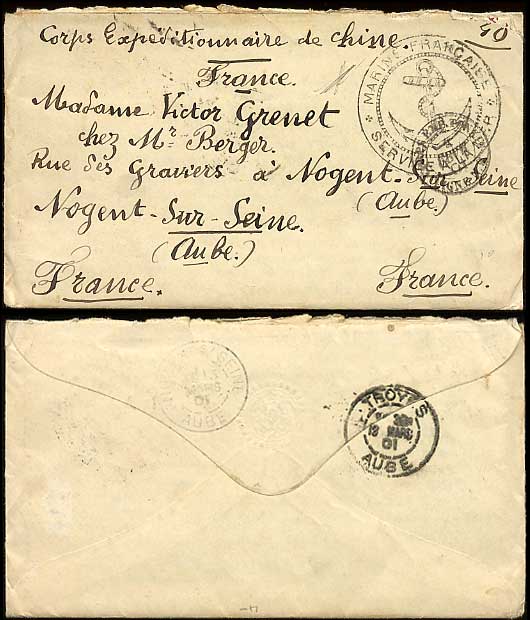 Corps Expeditionnaire de Chine.
40
France.
Madame Victor Grenet
chez Mr Berger.
Rue des Graviers à Nogent-Sur-Seine
Nogent-Sur-Seine. (Aube.)
(Aube.)
France. France.
MARINE FRANÇAISE
SEINE
MARS
01
AUBE
TROYES
13 MARS
01
AUBE